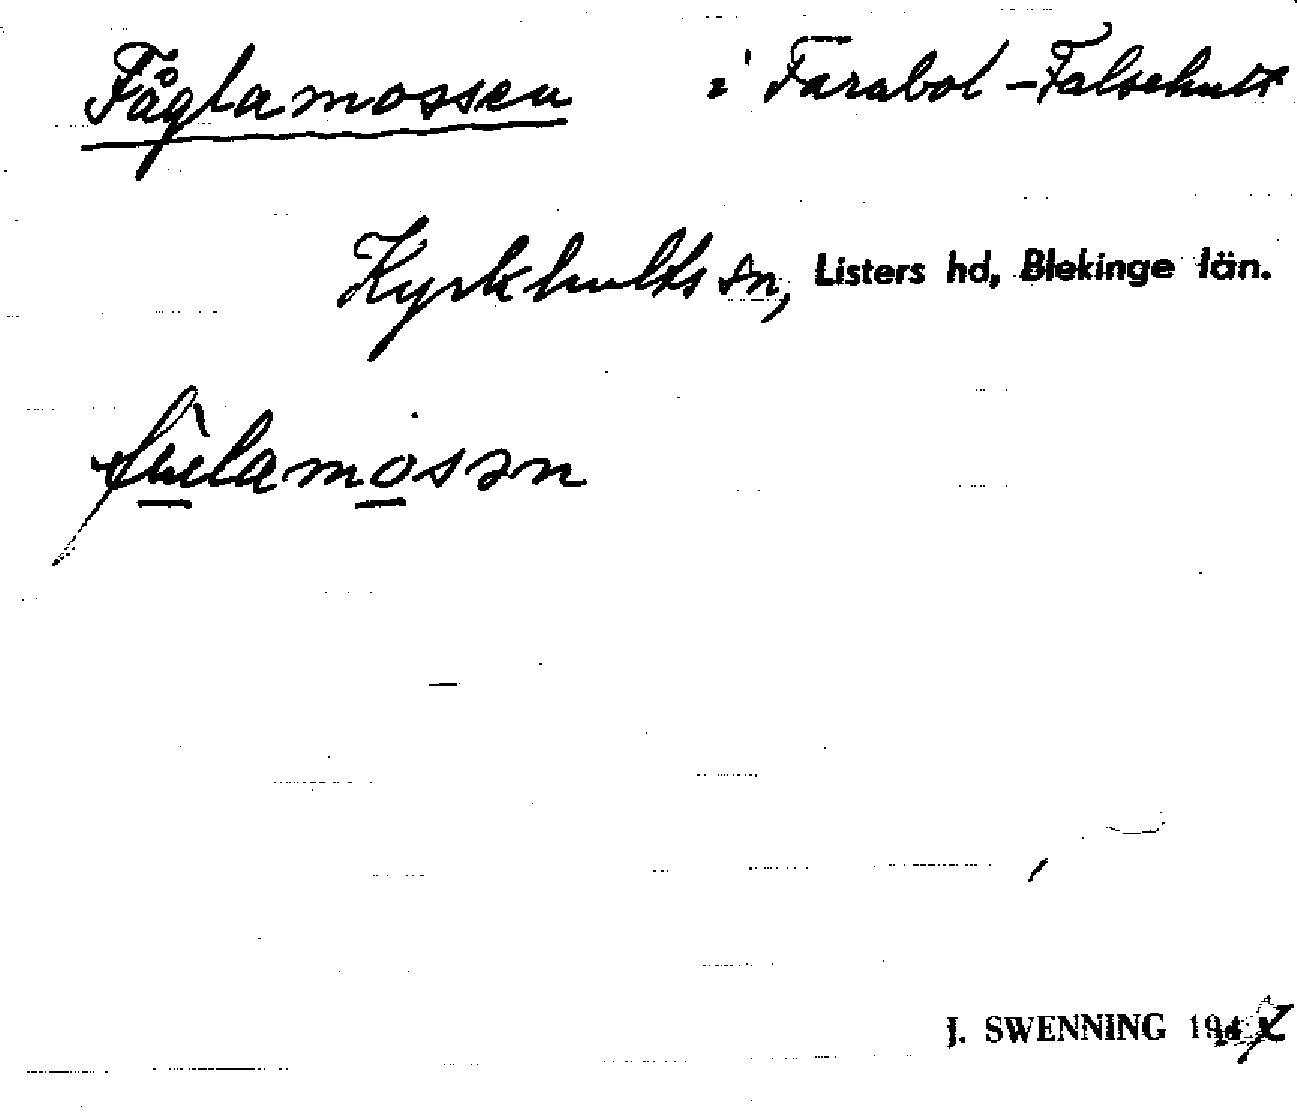 Fåglamossen i Farabol - Falsehult
Kyrkhults sn, Listers hd, Blekinge län.
fúelamosən
J. SWENNING 1947